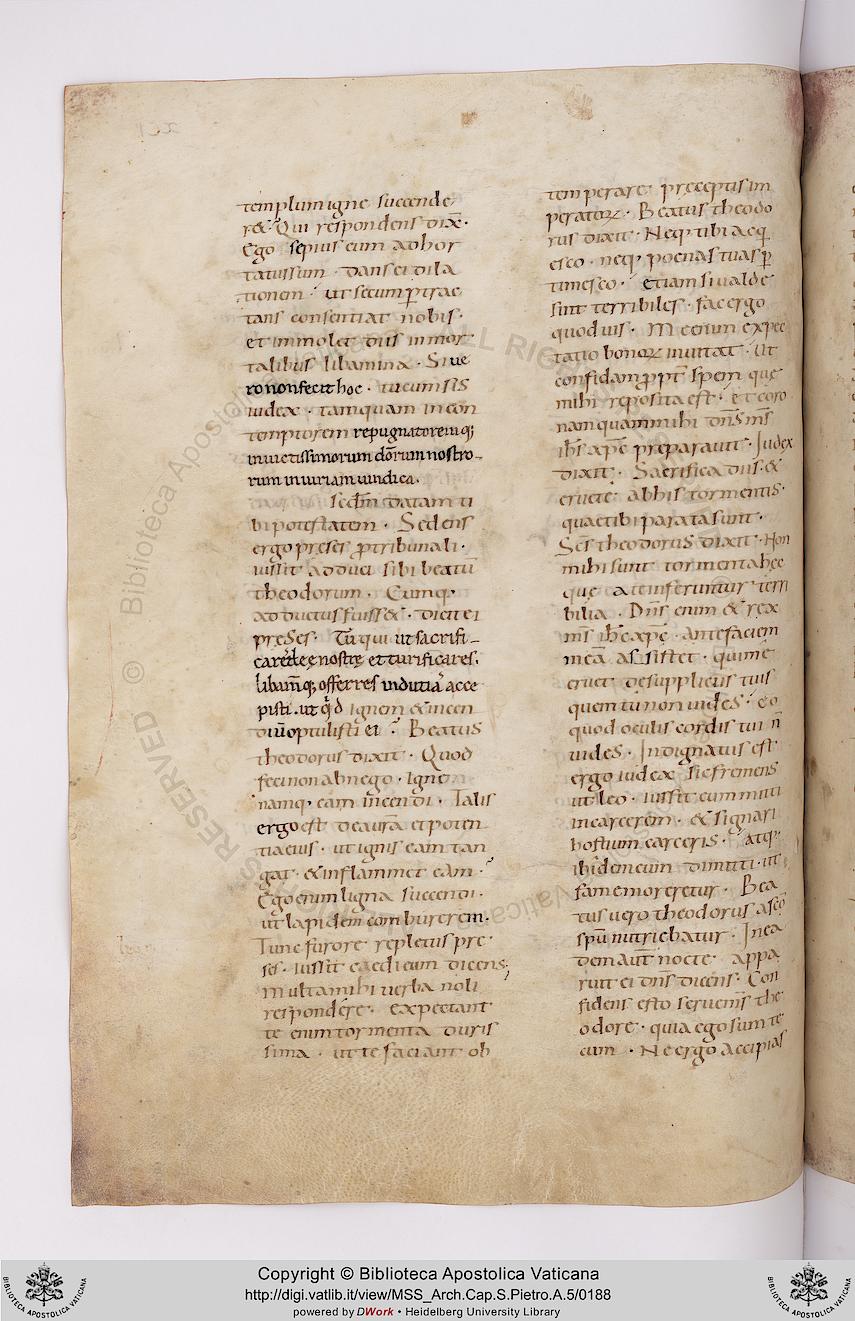 templum igne succende
r&. Qui respondens dix̄.
Ego sepius eum adhor
tatus sum. dans ei dila
tionem. ut secum ptrac
tans consentiat nobis.
et immolet diis inmor
talibus libamina. Si ue
ro non fecit hoc. tu cum sis
iudex. tamquam in con
temptorem repugnatoremq;
inuictissimorum dōrum nostro-
rum iniuriam uindica.
secdm datam ti
bi potestatem. Sedens
ergo preses p tribunali.
iussit adduci sibi beatū
theodorum. Cumq.
adductus fuiss&. dicit ei
preses. Tu qui ut sacrifi-
cares deę nostrę et turificares.
libamq; offerres indutia acce
pisti. ut qd ignem & incen
diū optulisti ei? Beatus
theodorus dixit. Quod
feci non abnego. Igne
namq. eam incendi. Talis
ergo est dea ura et poten
tia eius. ut ignis eam tan
gat. & inflammet eam.
Ego enim ligna succendi.
ut lapidem comburerem.
Tunc furore repletus pre
ses. iussit caedi eum dicens;
Multa mihi uerba noli
respondere. expectant
te enim tormenta duris
sima. ut te faciant ob
temperare preceptis im
peratoꝝ. Beatus theodo
rus dixit. Neq. tibi acq
esco. neq. poenas tuas p
timesco. etiam si ualde
sint terribiles. fac ergo
quod uis. Me enim expec
tatio bonoꝝ inuitat. Ut
confidam ppt spem que
mihi reposita est. et coro
nam quam mihi dn̄s m̄s
ihs xp̄c preparauit. Iudex
dixit. Sacrifica diis. &
eruere ab his tormentis.
quae tibi parata sunt.
Sc̄s theodorus dixit. Non
mihi sunt tormenta hęc
quę a te inferuntur terri
bilia. Dn̄s enim & rex
m̄s ih̄c xp̄c. ante faciem
meā assistet. qui me
eruet de suppliciis tuis
quem tu non uides. eo
quod oculis cordis tui n̄
uides. Indignatus est
ergo iudex sic fremens
ut leo. iussit eum mitti
in carcerem. & signari
hostium carceris. atq.
ibidem eum dimitti. ut
fame moreretur. Bea
tus uero theodorus a scō
spū nutriebatur. In ea
dem aut̄ nocte. appa
ruit ei dn̄s dicens. Con
fidens esto serue m̄s the
odore. quia ego sum te
cum. Ne ergo accipias
Copyright © Biblioteca Apostolica Vaticana
http://digi.vatlib.it/view/MSS_Arch.Cap.S.Pietro.A.5/0188
powered by DWork • Heidelberg University Library